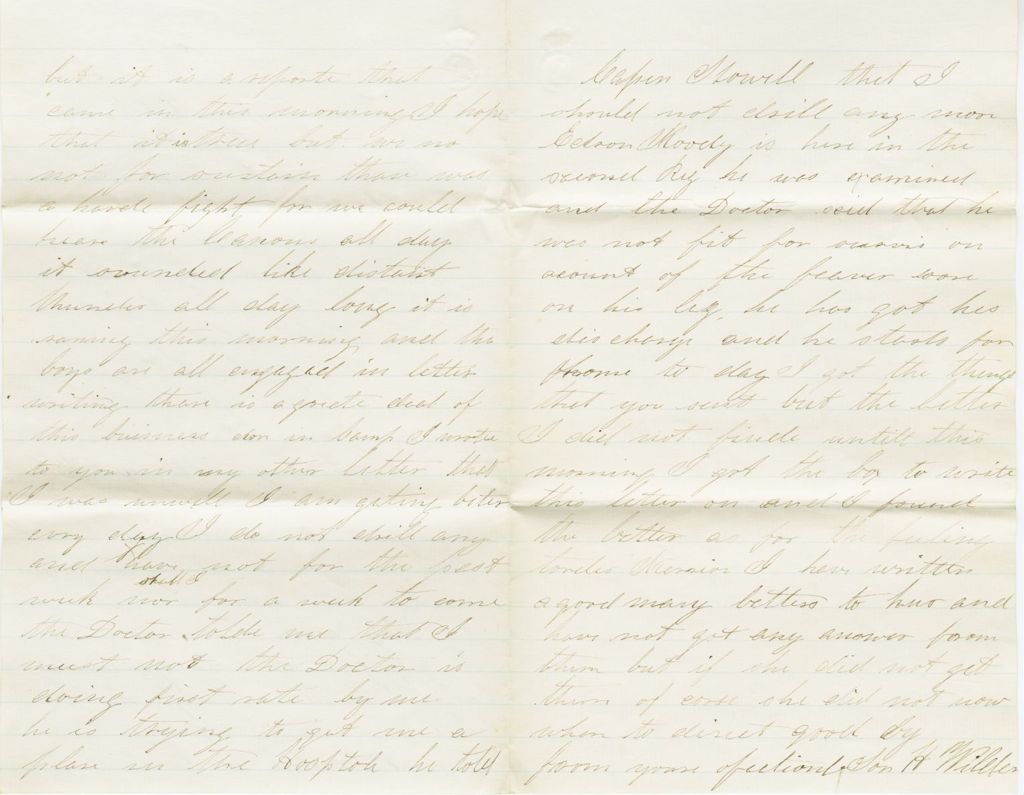 but it is a reporte that
came in this morning I hope
that it is true but we no
not for sustain thare was
a harde fight for we could
heare the Canons all day
it sounded like distant
thunder all day long it is
raining this morning and the
boys are all engaged in letter
writing thare is a greate deal of
this buisness don in Camp I wrote
to you in my other letter that
I was unwell I am geting beter
evry day I do not drill any
and have not for the past
week nor shall I for a week to come
the Doctor tolde me that I
must not the Doctor is
doing first rate by me
he is trying to get me a
place in the Hospitole he told
Capen Stowell that I
should not drill any more
Edson Moody is here in the
second Reg he was examined
and the Doctor said that he
was not fit for on
acount of the feaver sore
on his leg he has got hes
discharge and he starts for
home to day I got the things
that you sent but the letter
I did not finde untill this
morning I got the box to write
this letter on and I found
the letter as for the feeling
tordes I have written
a good many letters to hur and
have not got any answer from
them but if she did not get
them of corse she did not now
when to direct good By
from youre afectionl Son H M Wilder